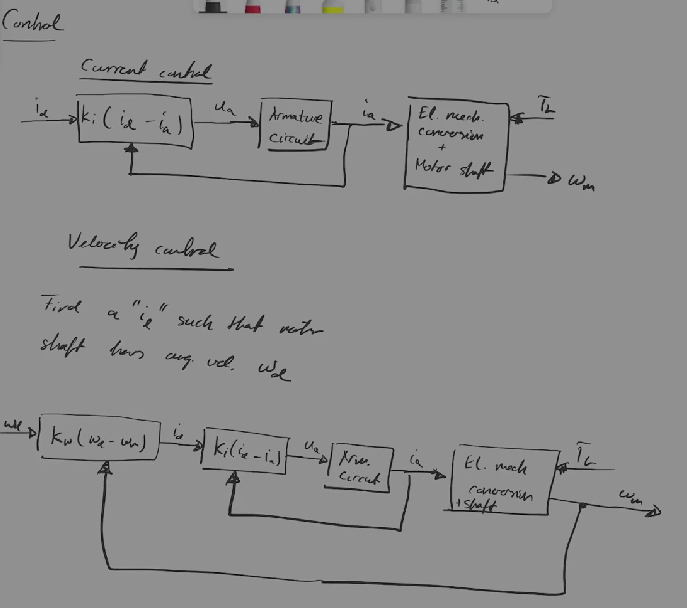 Control
Current control
i_d
k_i(i_d - i_a)
u_a
Armature
circuit
i_a
El. mech.
conversion
+
Motor shaft
T_L
ω_m
Velocity control
Find a "i_d" such that motor
shaft has ang. vel. ω_d
ω_d
k_ω(ω_d - ω_m)
i_d
k_i(i_d - i_a)
u_a
Arm.
circuit
i_a
El. mech
conversion
+ shaft
T_L
ω_m